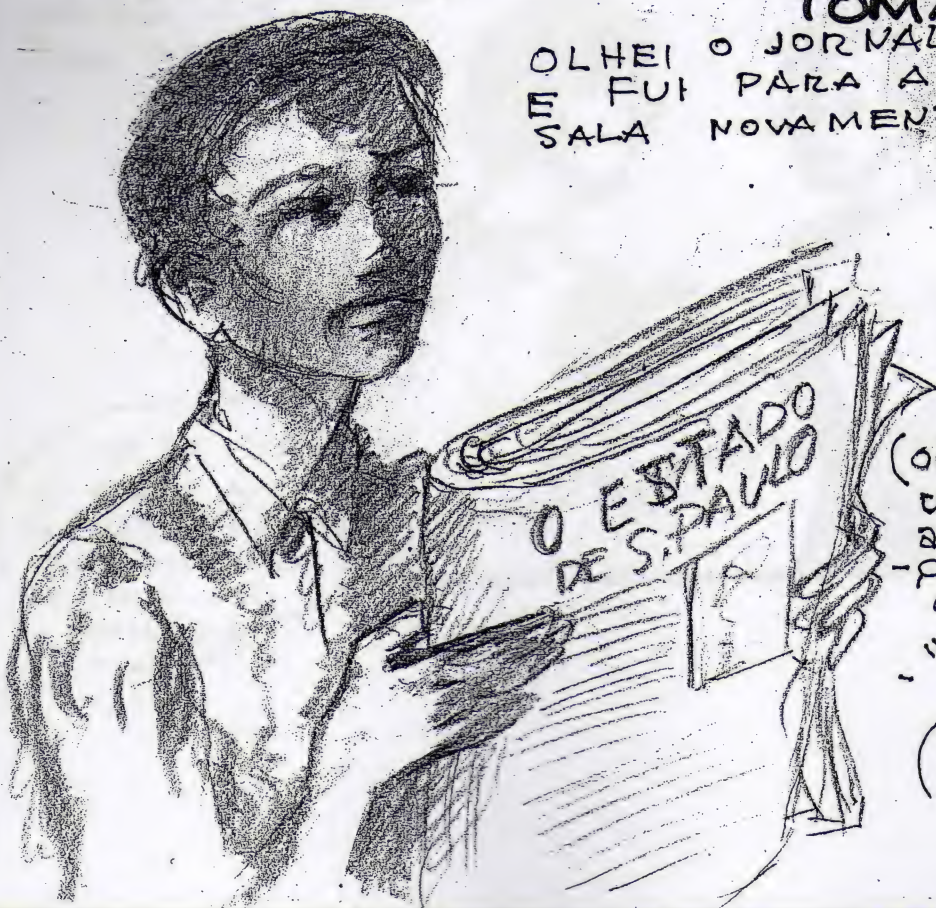 TOMA
OLHEI O JORNAL
E FUI PARA A
SALA NOVAMEN
O ESTADO
DE S. PAULO